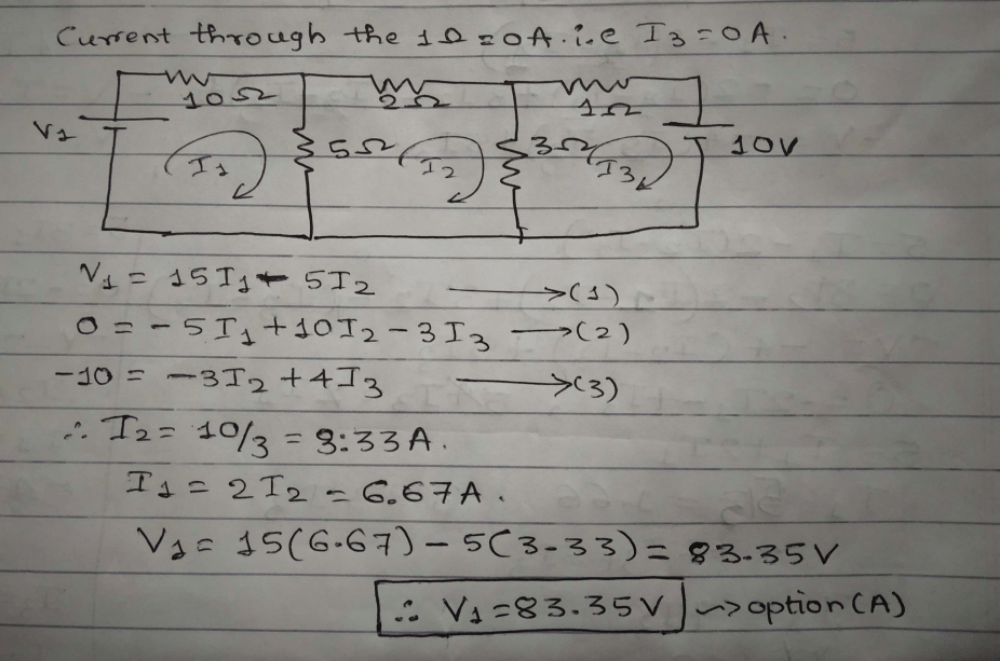 Current through the 1Ω = 0A. i.e I3 = 0A.
10Ω 2Ω 1Ω
V1 5Ω 3Ω 10V
I1 I2 I3
V1 = 15I1 - 5I2 ⟶(1)
0 = -5I1 + 10I2 - 3I3 ⟶(2)
-10 = -3I2 + 4I3 ⟶(3)
∴ I2 = 10/3 = 3.33A.
I1 = 2I2 = 6.67A.
V1 = 15(6.67) - 5(3.33) = 83.35V
∴ V1 = 83.35V ⇝ option(A)